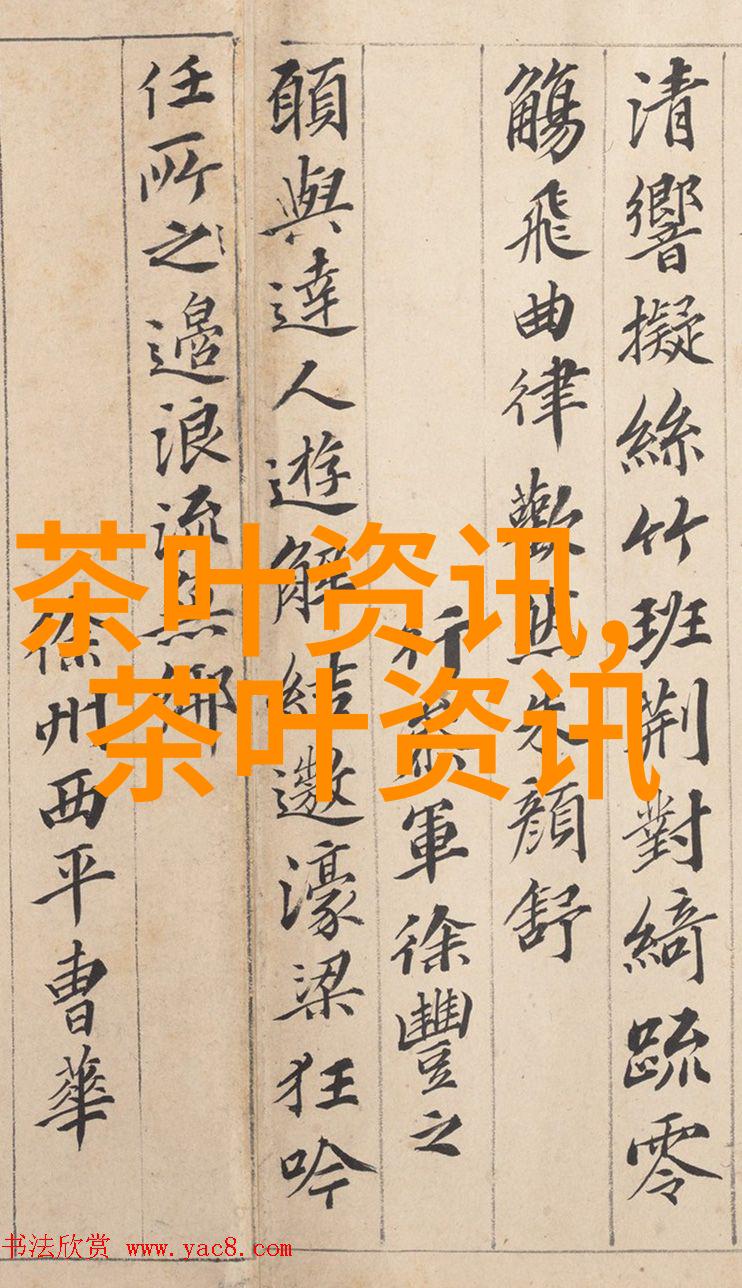 清響擬絲竹班荆對綺䟽零
觴飛曲律歡然朱顏舒
行參軍徐豐之
願與達人遊解結遨濠梁狂吟
任所之邉浪流無鄉
徐州西平曹華
茶叶资讯,
茶叶资讯
书法欣赏 www.yac8.com